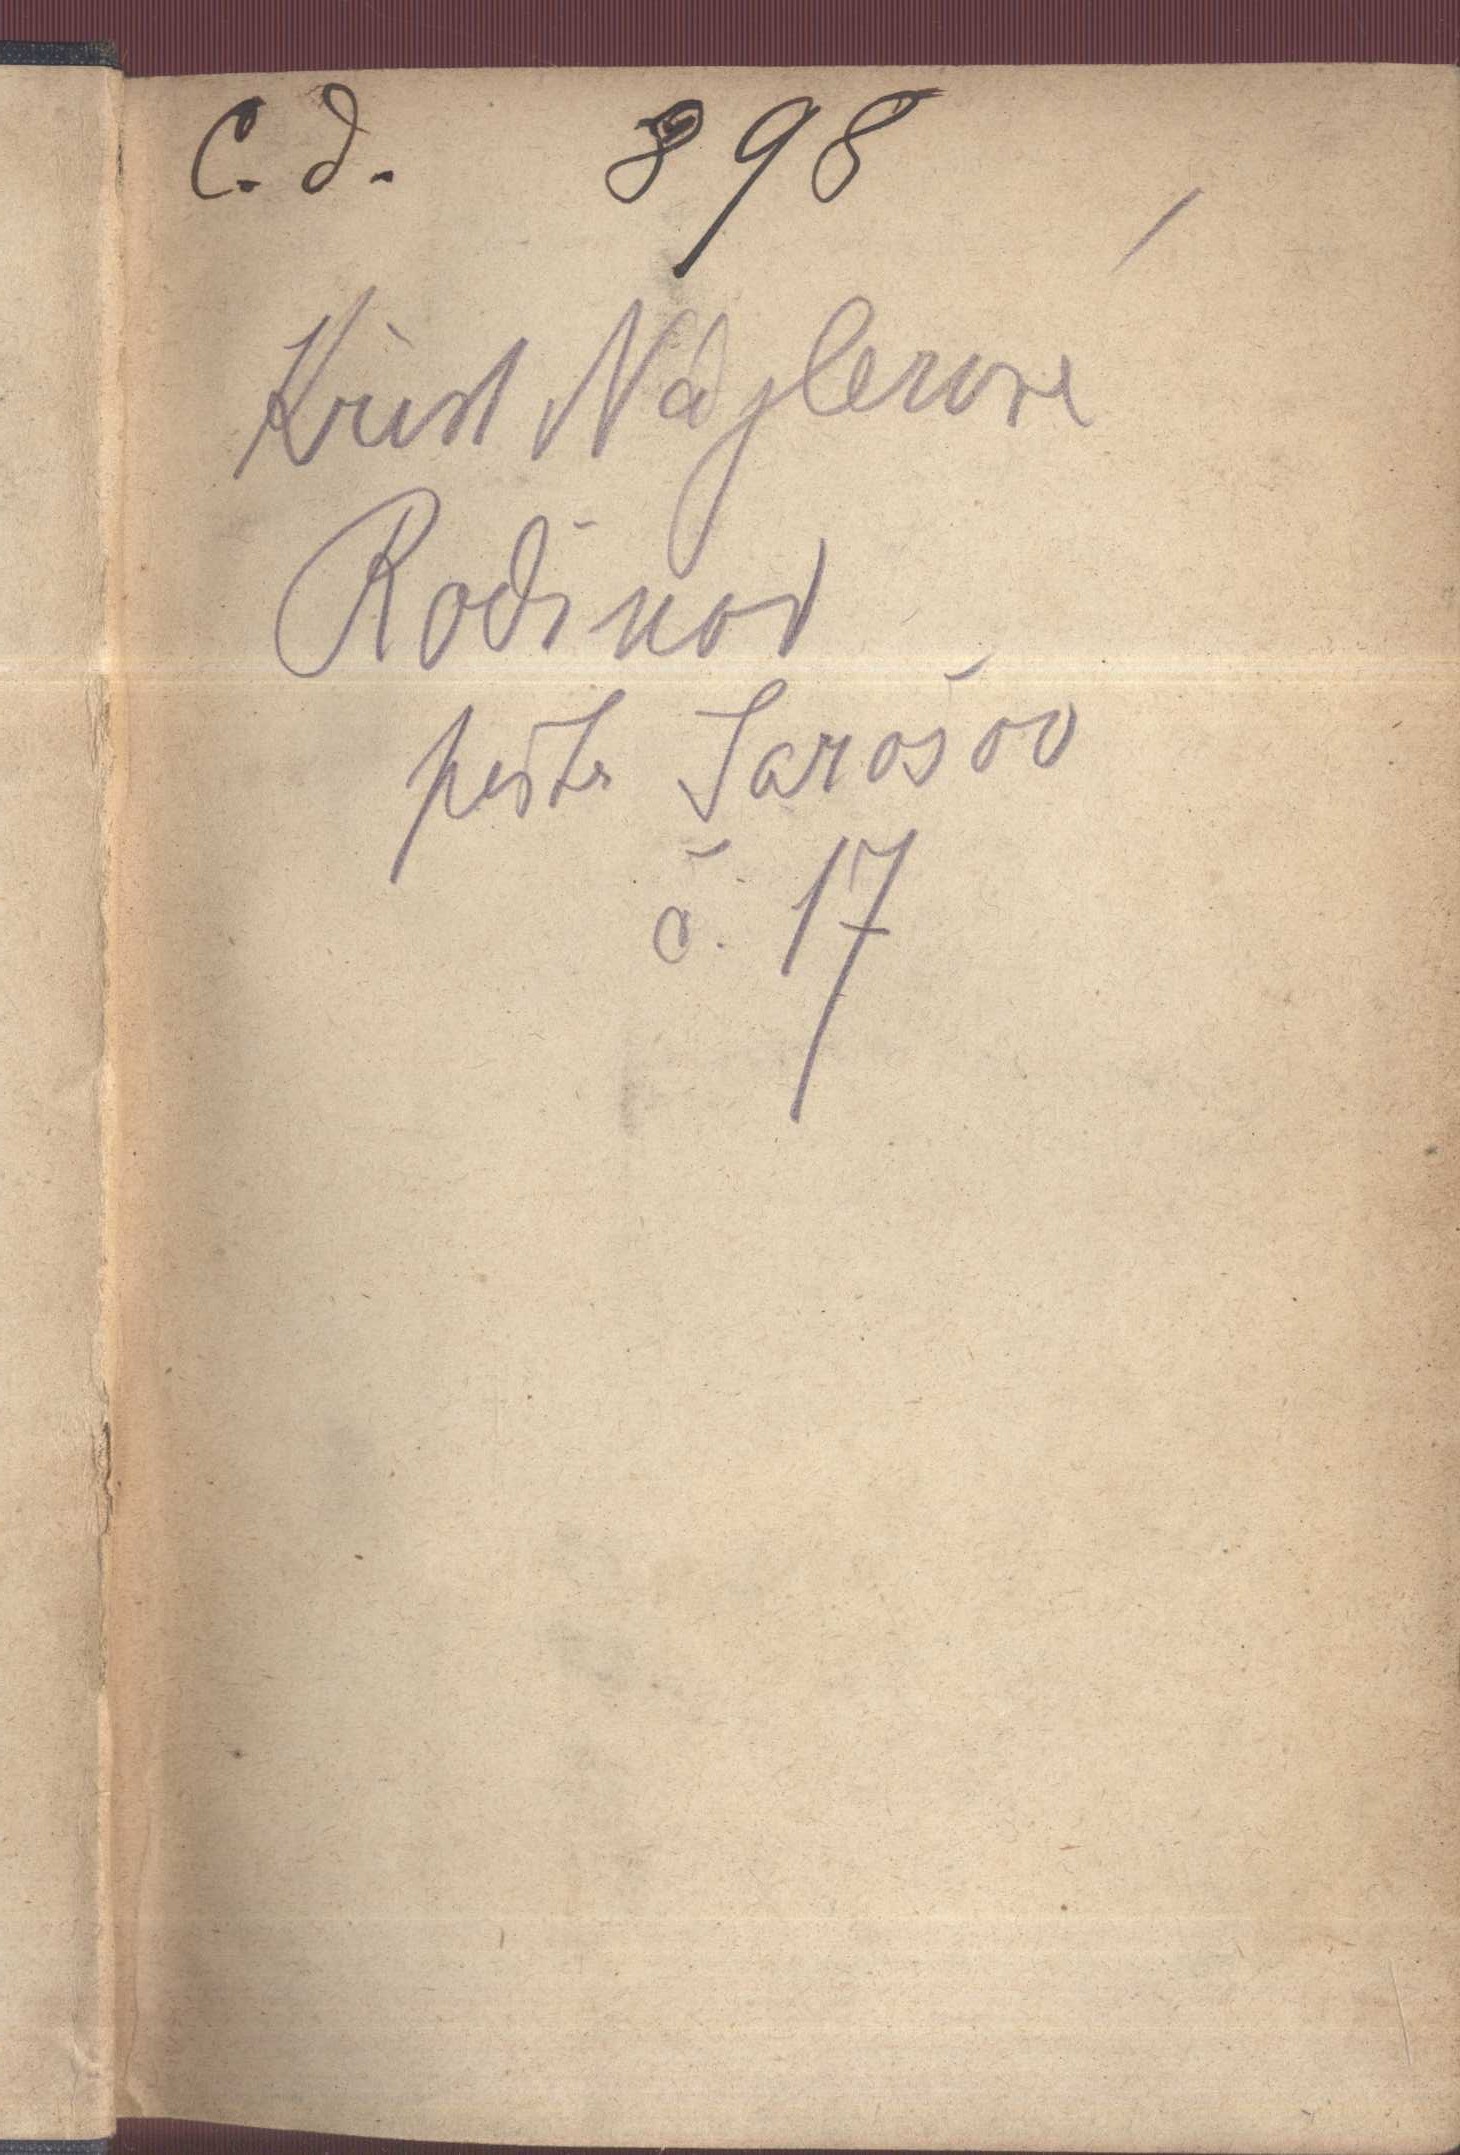 C. d. 898
Krist Náglerová
Rodinov
pošta Sarošov
č. 17